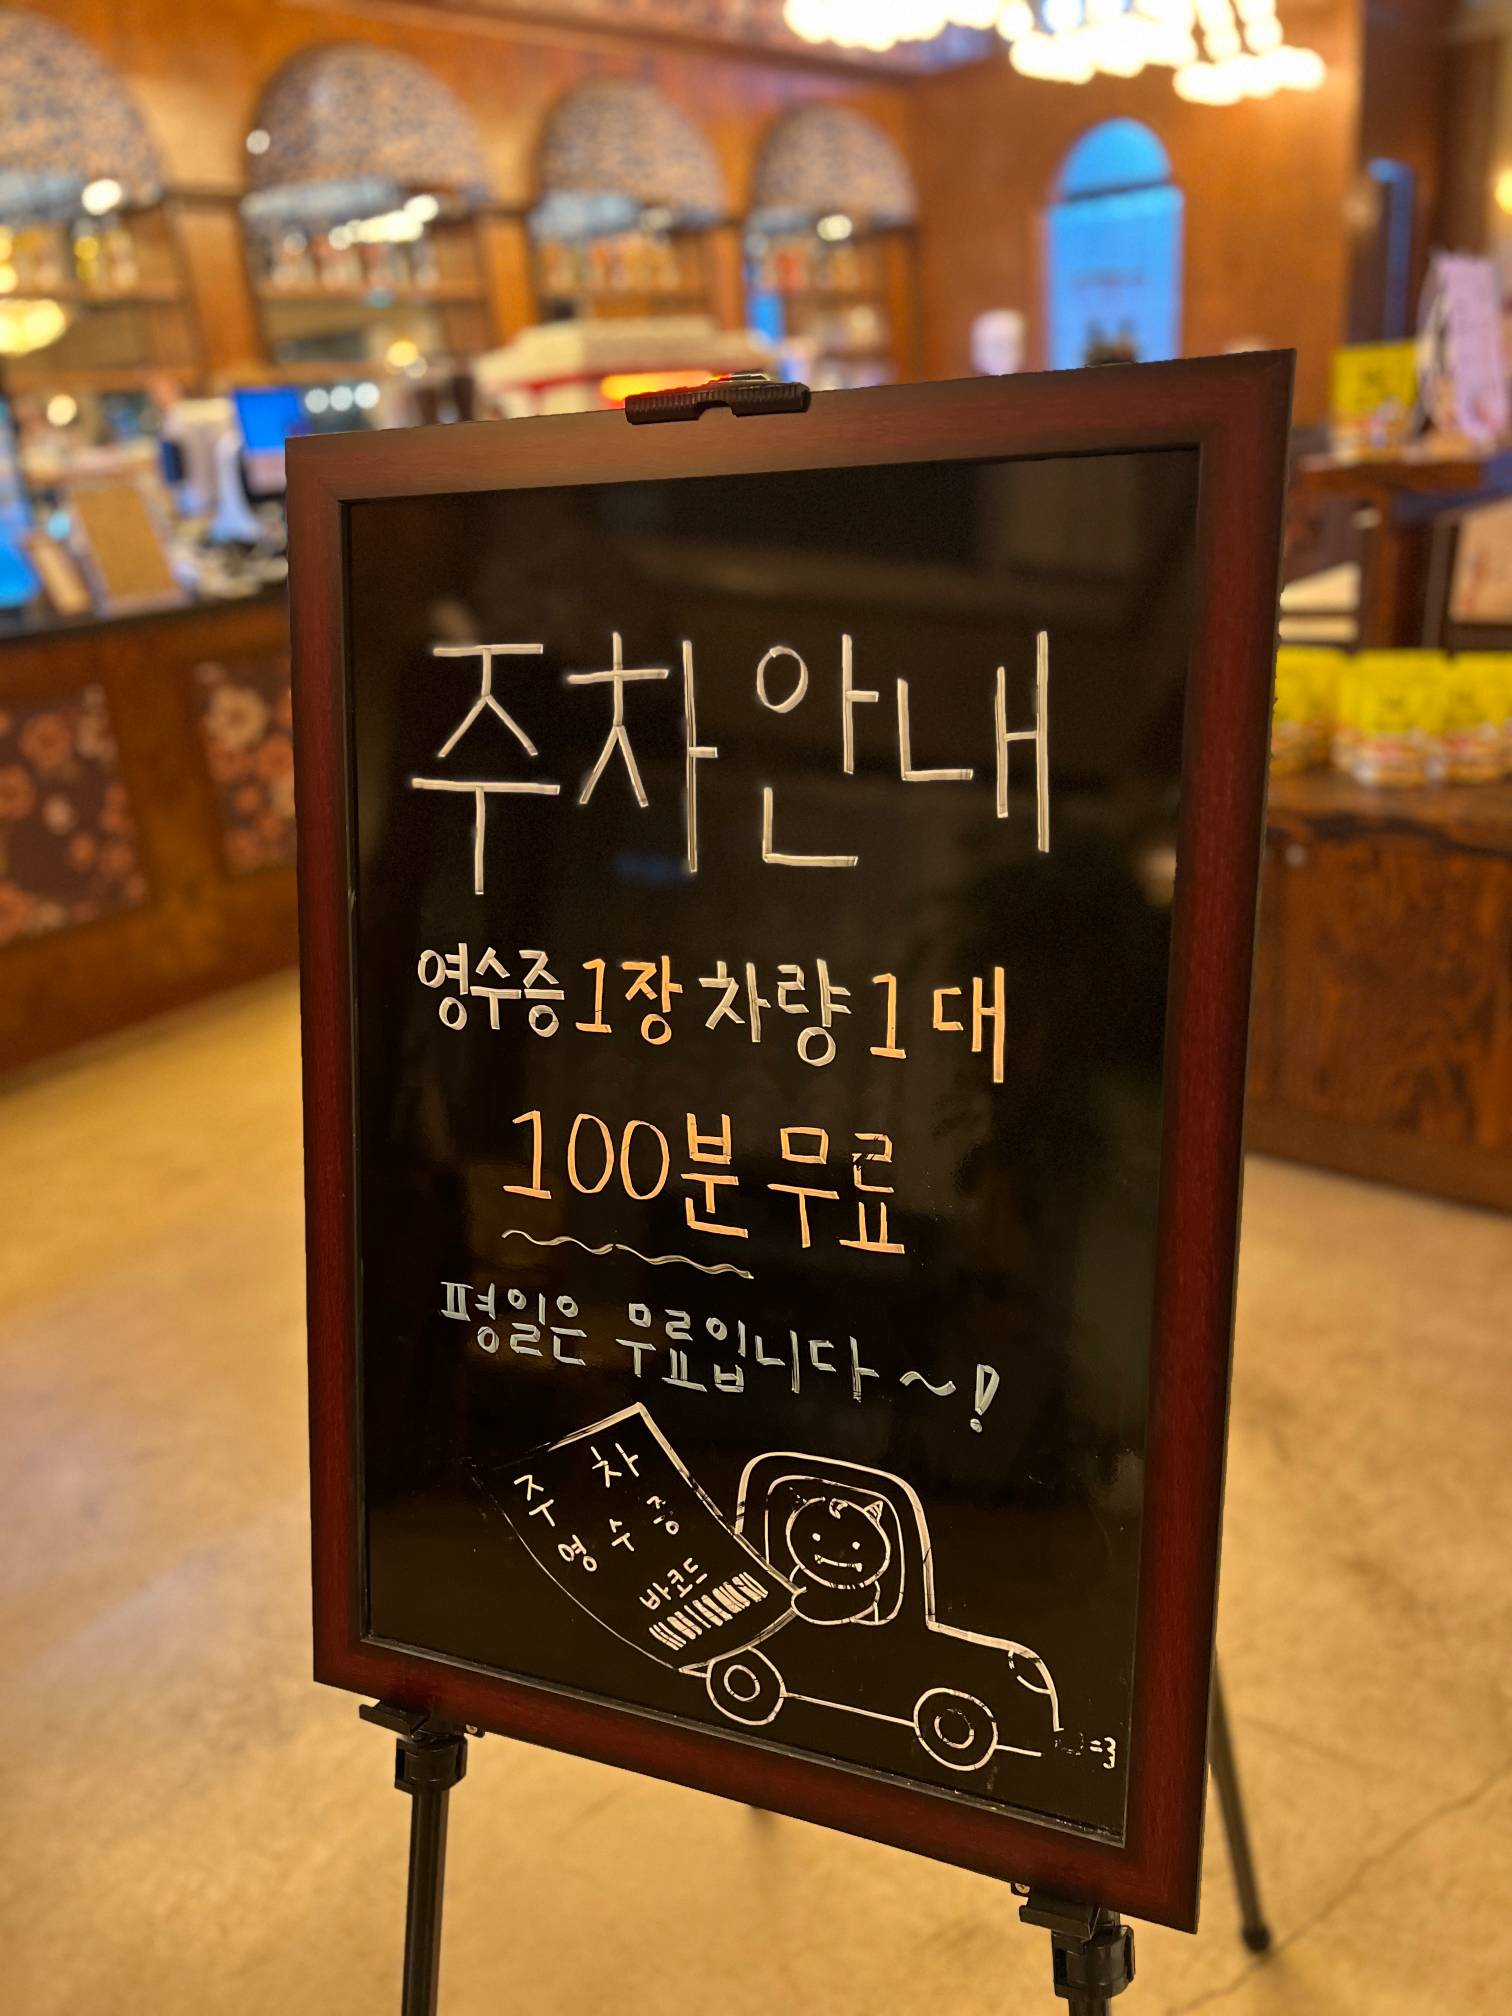 주차안내
영수증 1장 차량 1대
100분 무료
평일은 무료입니다~!
주차
영수증
바코드